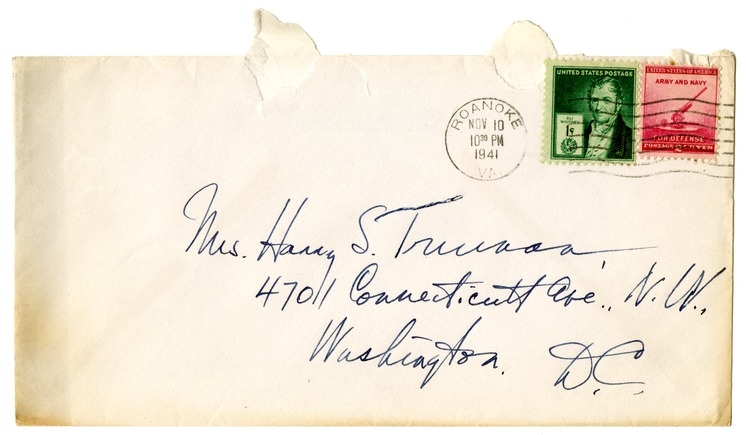 ROANOKE
NOV 10
10³⁰ PM
1941
VA.
UNITED STATES POSTAGE
ELI WHITNEY
1¢
UNITED STATES OF AMERICA
ARMY AND NAVY
FOR DEFENSE
POSTAGE
Mrs. Harry S. Truman,
4701 Connecticutt Ave., N.W.,
Washington, D.C.